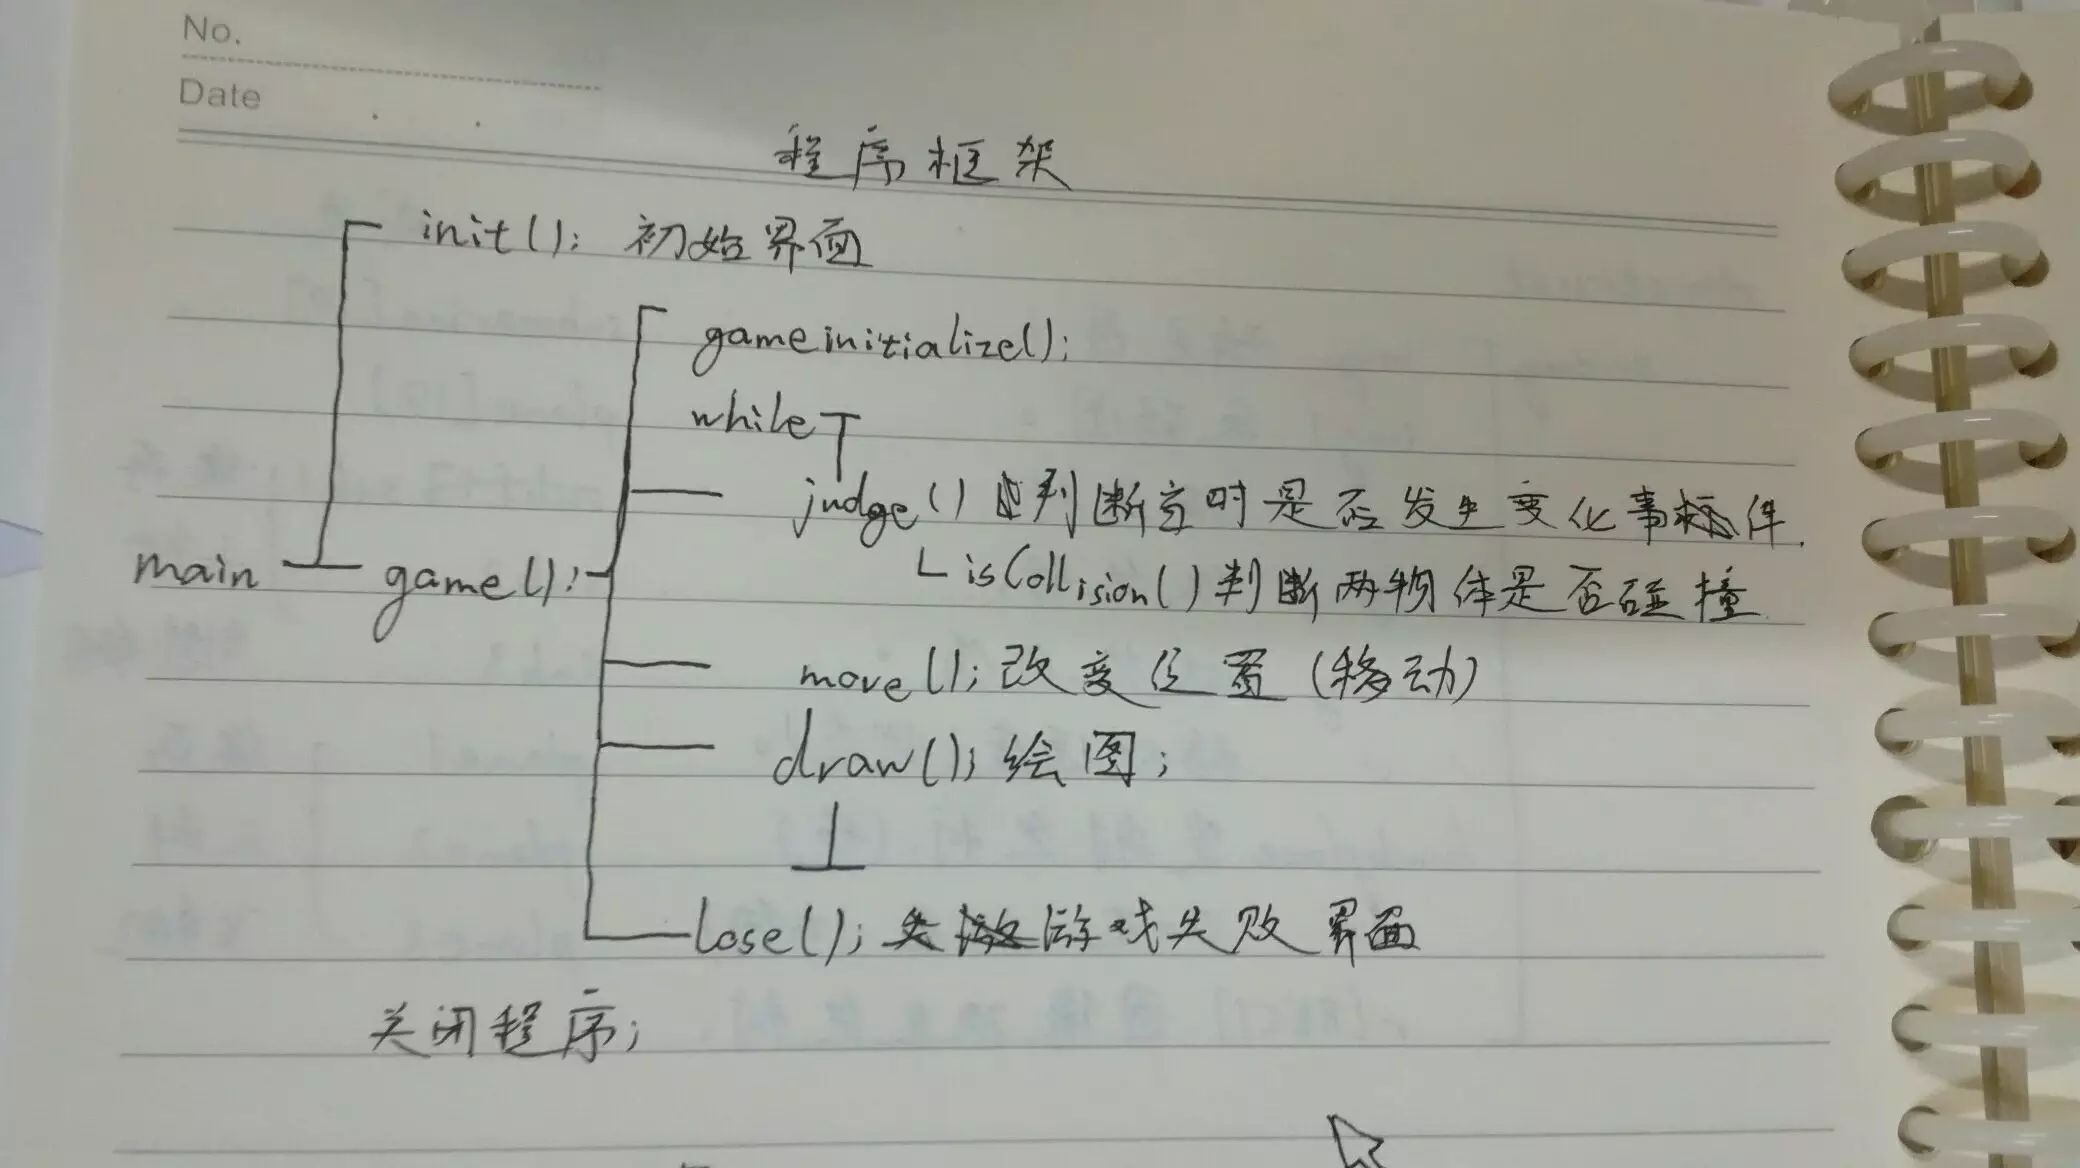 No.
Date
程序框架
init(); 初始界面
gameinitialize();
while
judge() 判断立时是否发生变化事件.
main game();
isCollision() 判断两物体是否碰撞.
move(); 改变位置(移动)
draw(); 绘图;
lose(); 游戏失败界面
关闭程序;